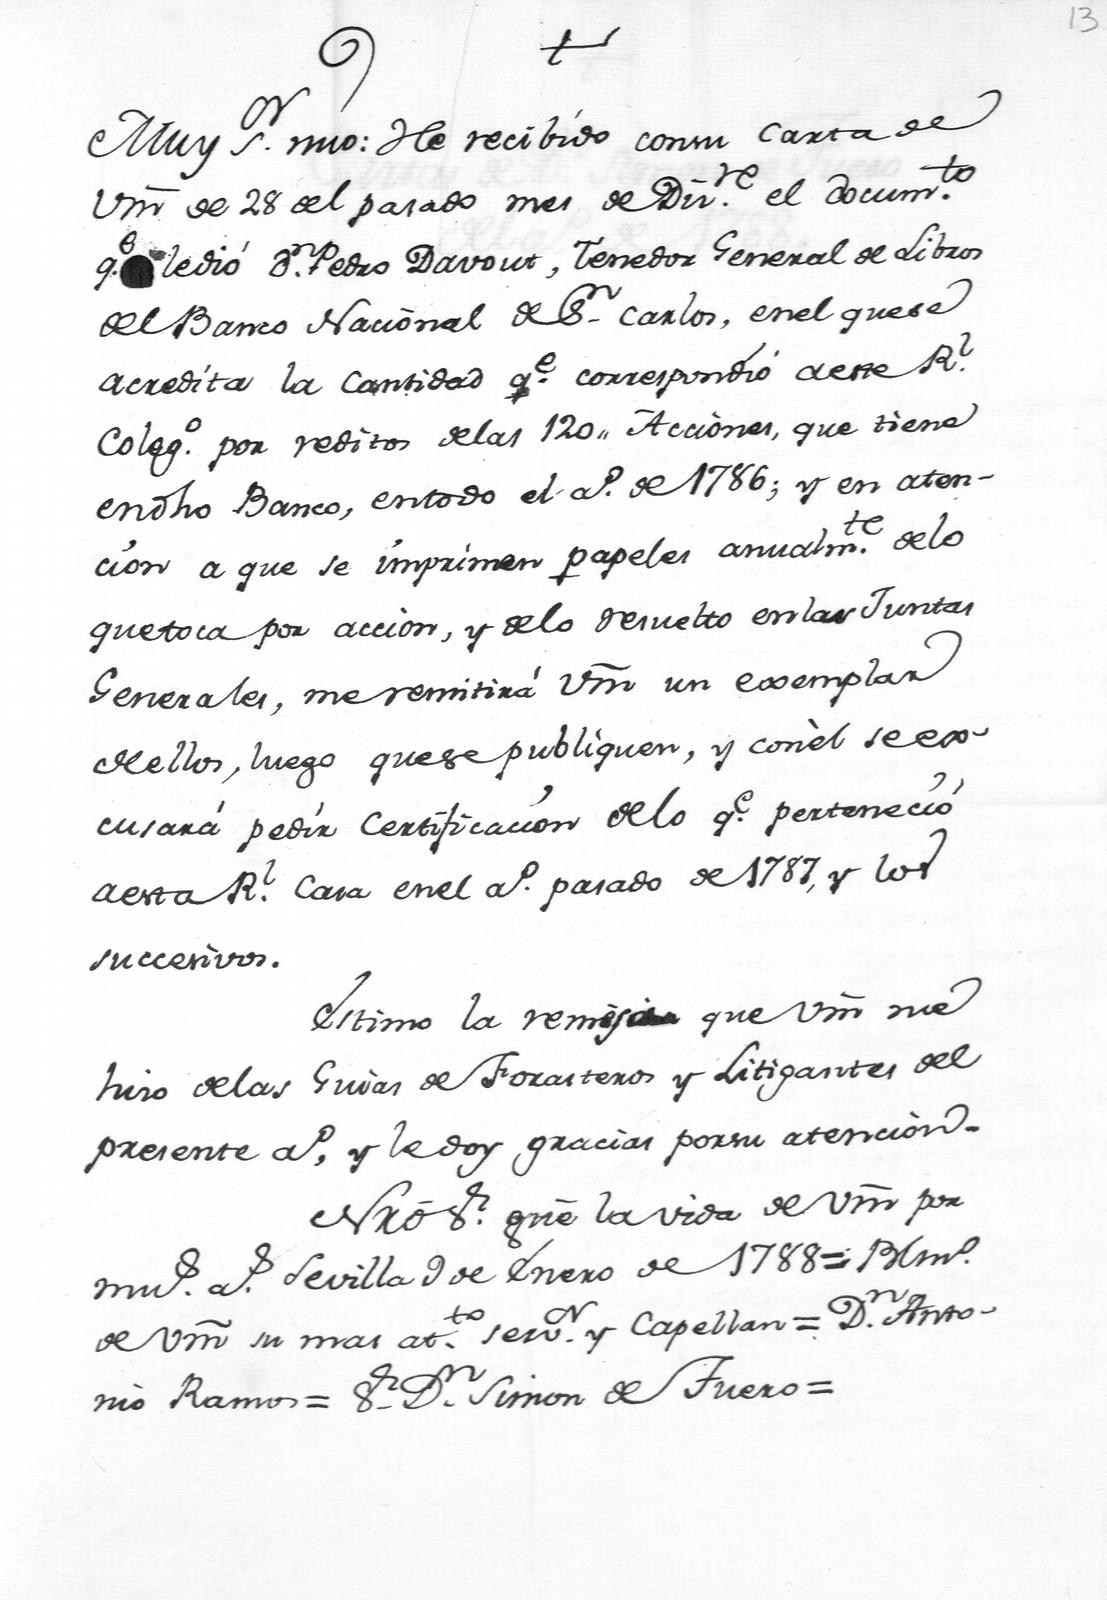 13
Muy S.or mio: He recibido consu Carta de
Vm̃ de 28 del pasado mes de Div.re el docum.to
q.e ledió d.n Pedro Davout, Tenedor General de Libros
del Banco Nacional de S.n Carlos, enel quese
acredita la Cantidad q.e correspondió aeste R.l
Coleg.o por reditos delas 120,, Acciones, que tiene
endho Banco, entodo el a.o de 1786; y en aten-
ción a que se imprimen papeles anualm.te delo
quetoca por accion, y delo resuelto enlas Juntas
Generales, me remitirá Vm̃ un exemplar
dellos, luego quese publiquen, y conèl se ex-
cusará pedir Certificación delo q.e perteneció
aesta R.l Casa enel a.o pasado de 1787, y los
succesivos.
Estimo la remision que Vm̃ me
hiso delas Guias de Forasteros y Litigantes del
presente a.o, y le doy gracias porsu atención.
Nrõ S.r gũe la vida de Vm̃ por
mu.s a.s Sevilla 9 de Enero de 1788= Blm.o
de Vm̃ su mas at.to serv.or y Capellan = D.n Anto-
nio Ramos = S.r D.n Simon de Fuero =